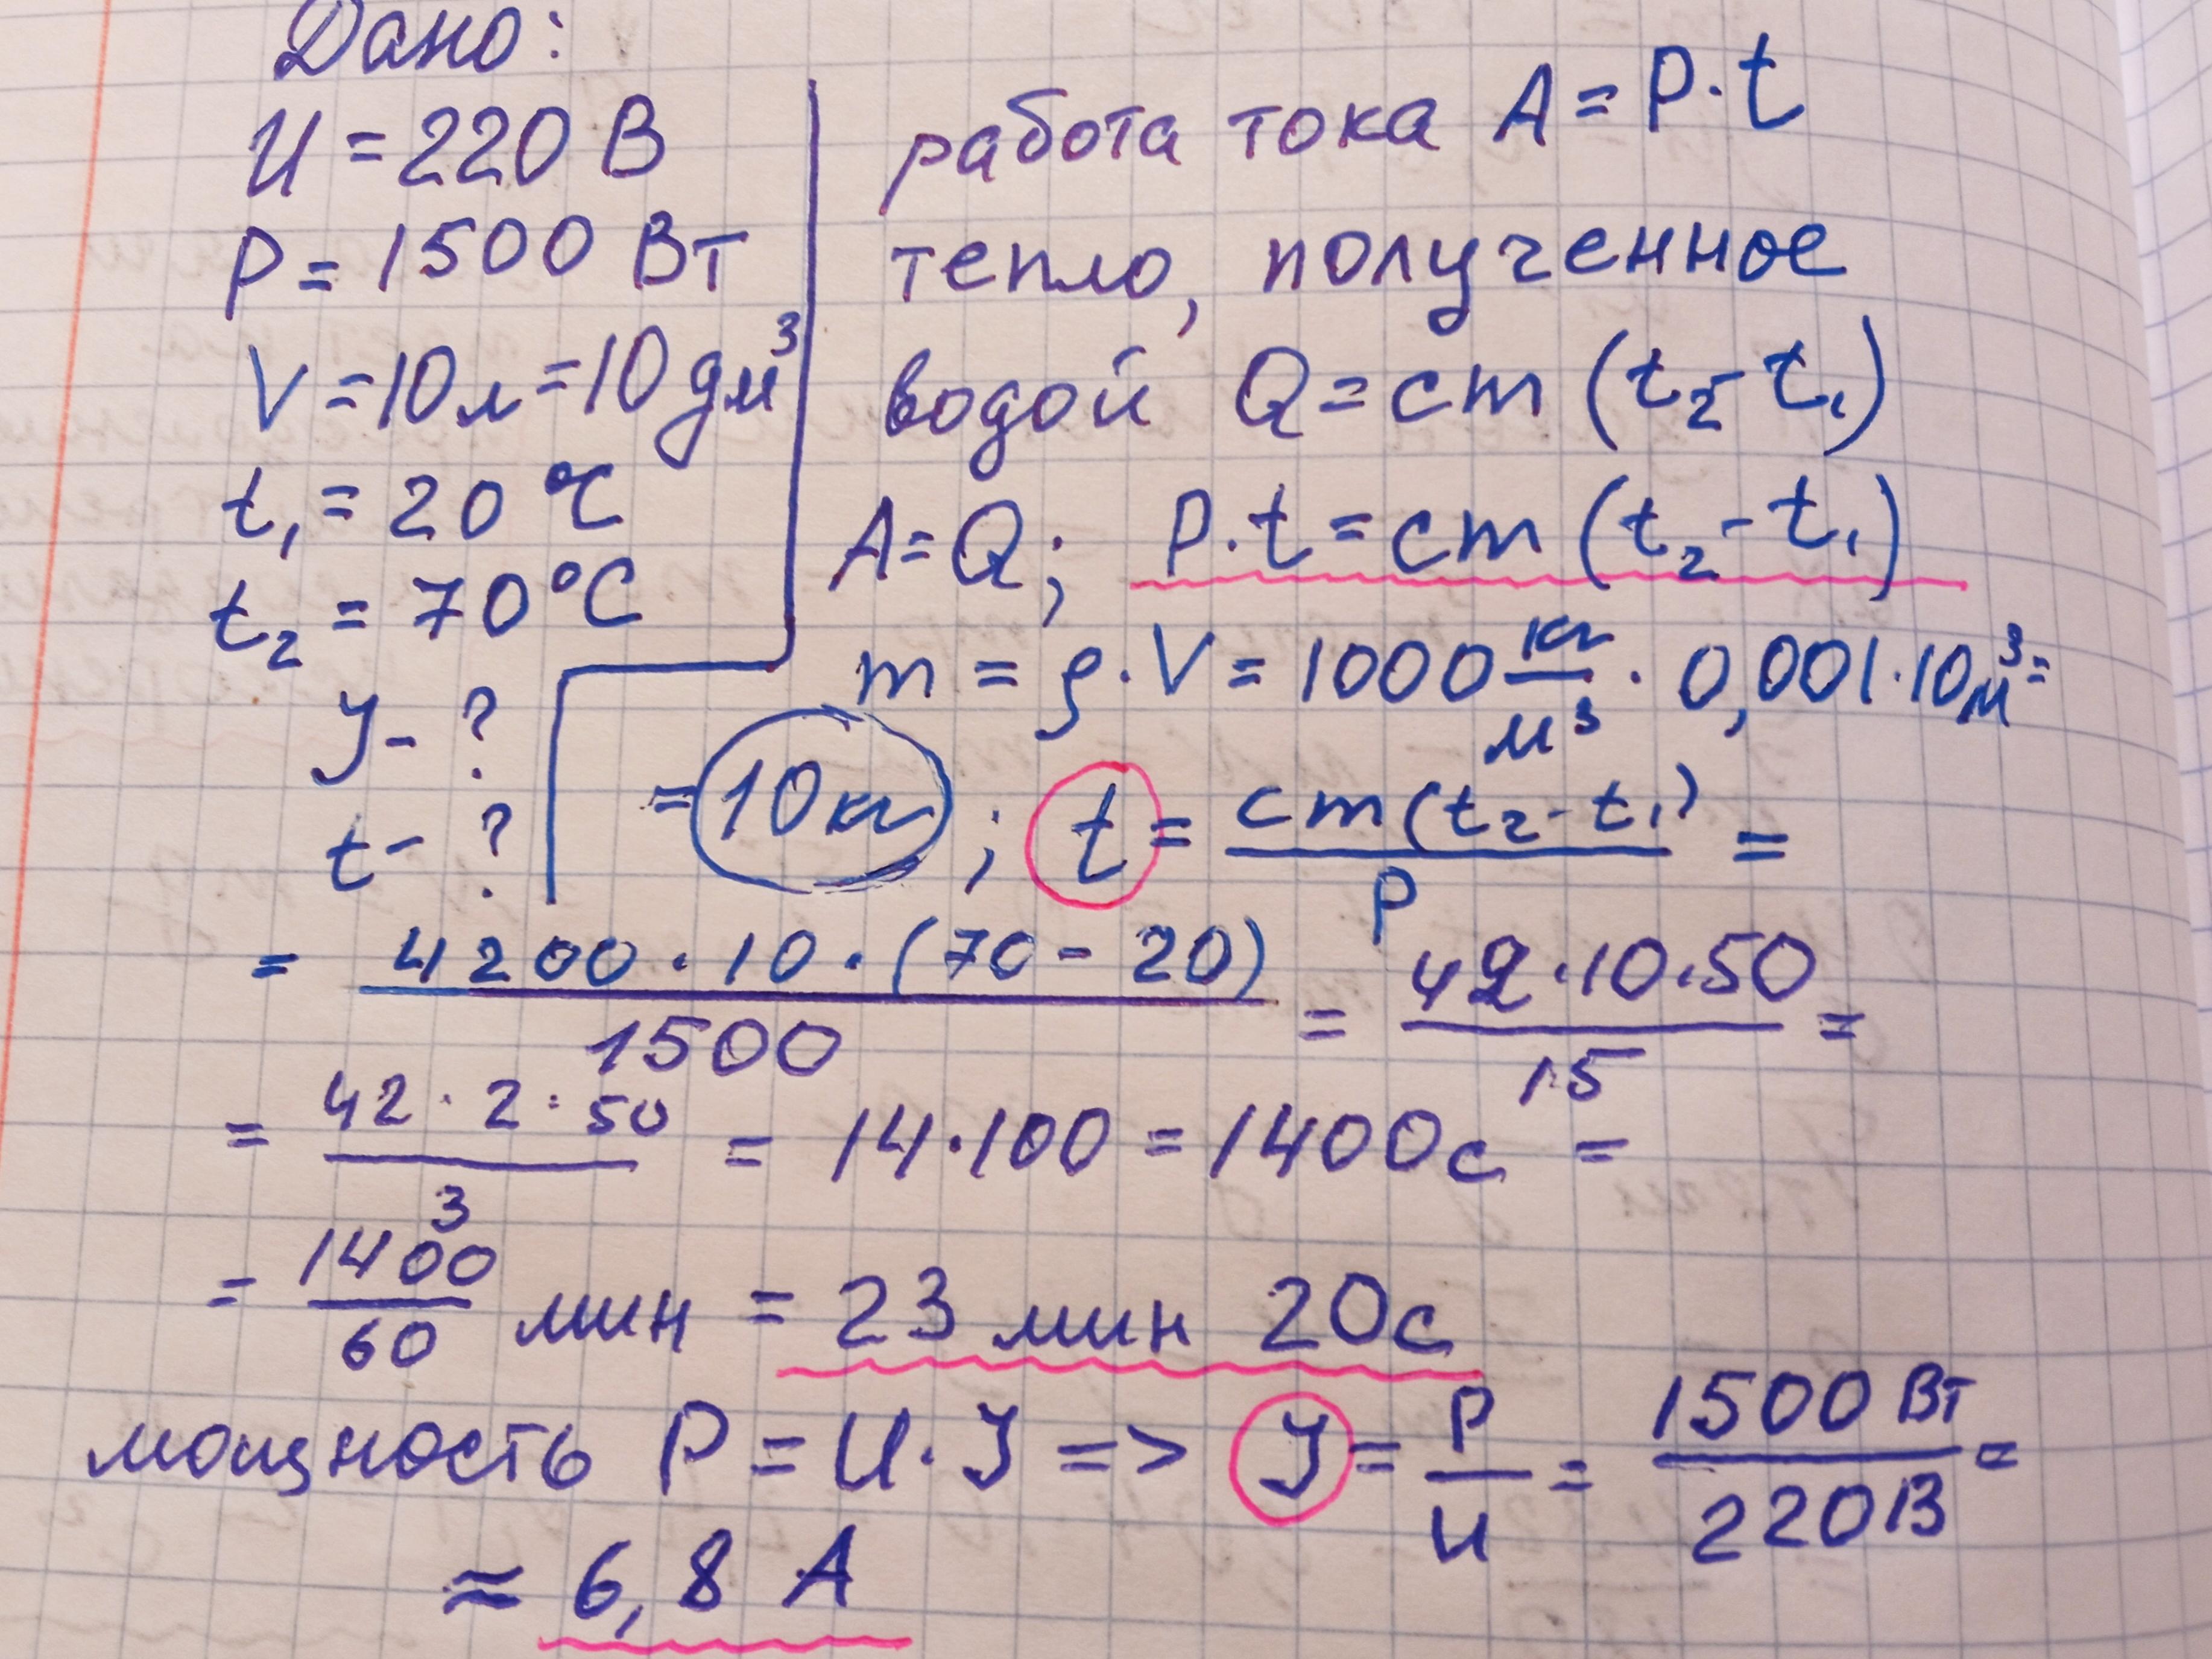 Дано:
U = 220 В
P = 1500 Вт
V = 10 л = 10 дм³
t₁ = 20 °C
t₂ = 70 °C
J - ?
t - ?
работа тока A = P · t
тепло, полученное
водой Q = cm (t₂ - t₁)
A = Q; P · t = cm (t₂ - t₁)
m = ρ · V = 1000 кг/м³ · 0,001 · 10 м³ =
= 10 кг ; t = cm(t₂ - t₁)/P =
= 4200 · 10 · (70 - 20)/1500 = 42 · 10 · 50/15 =
= 42 · 2 · 50/3 = 14 · 100 = 1400 с =
= 1400/60 мин = 23 мин 20 с
мощность P = U · J => J = P/U = 1500 Вт/220 В =
≈ 6,8 A